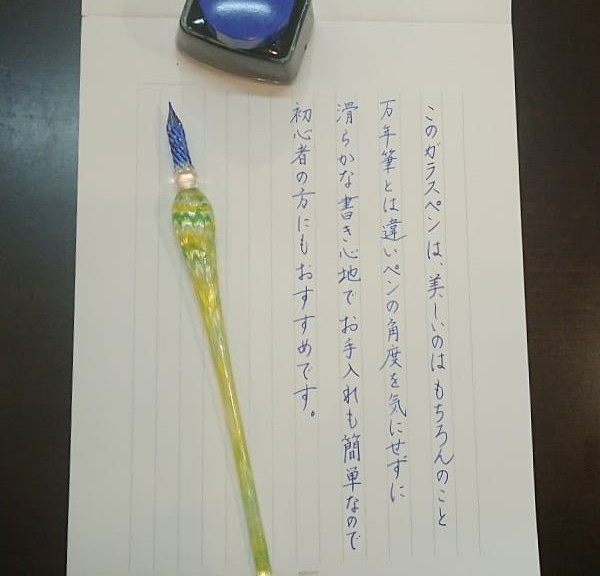 このガラスペンは、美しいのはもちろんのこと
万年筆とは違いペンの角度を気にせずに
滑らかな書き心地でお手入れも簡単なので
初心者の方にもおすすめです。